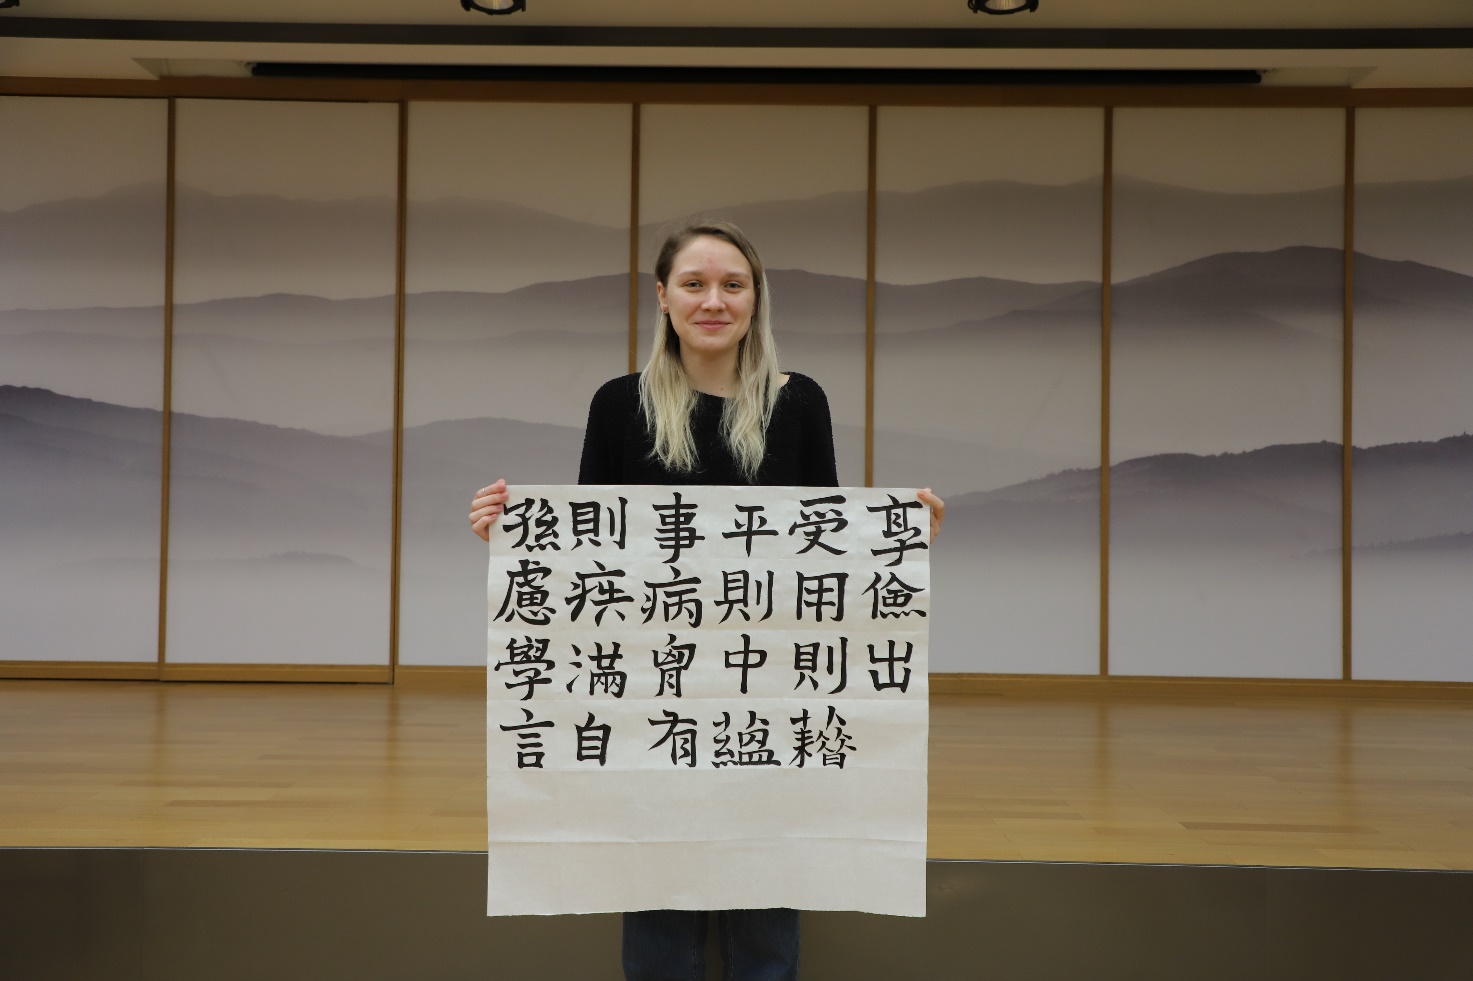 孫則事平受享
慮疾病則用儉
學滿胷中則出
言自有蘊藉